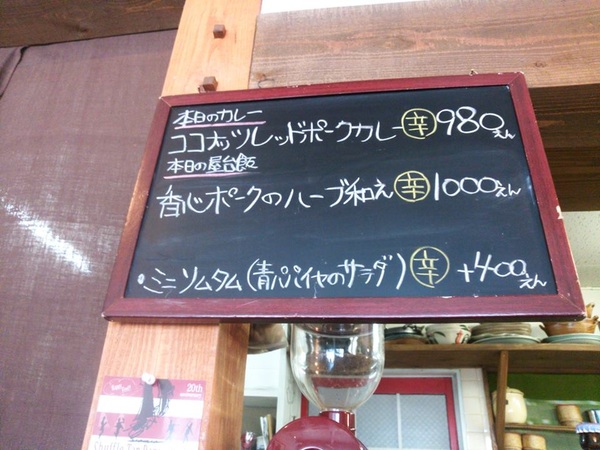 本日のカレー
ココナッツレッドポークカレー 辛 980えん
本日の屋台飯
香心ポークのハーブ和え 辛 1000えん
・ミニソムタム(青パパイヤのサラダ) 辛 +400えん
20th